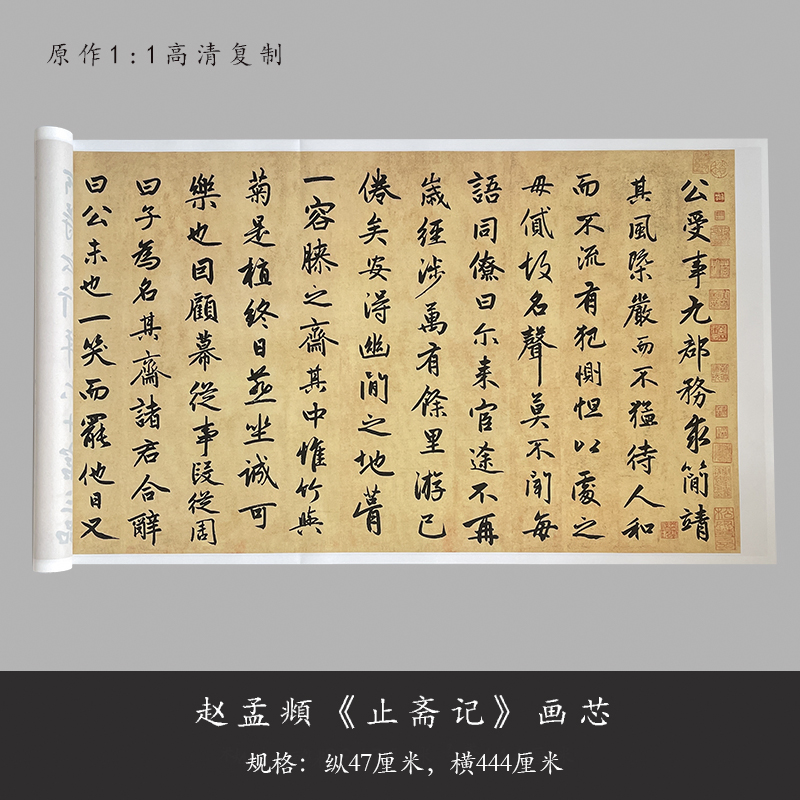 原作1:1高清复制
公受事尤郡務求簡靖
其風槩嚴而不猛待人和
而不流有犯惻怛以處之
毋貳故名聲莫不聞每
語同僚曰尔来官途不再
歲經涉萬有餘里游已
倦矣安得幽閒之地葺
一容膝之齋其中惟竹與
菊是植終日燕坐誠可
樂也回顧幕從事段從周
曰子為名其齋諸君合辭
曰公未也一笑而罷他日又
赵孟頫《止斋记》画芯
规格：纵47厘米，横444厘米